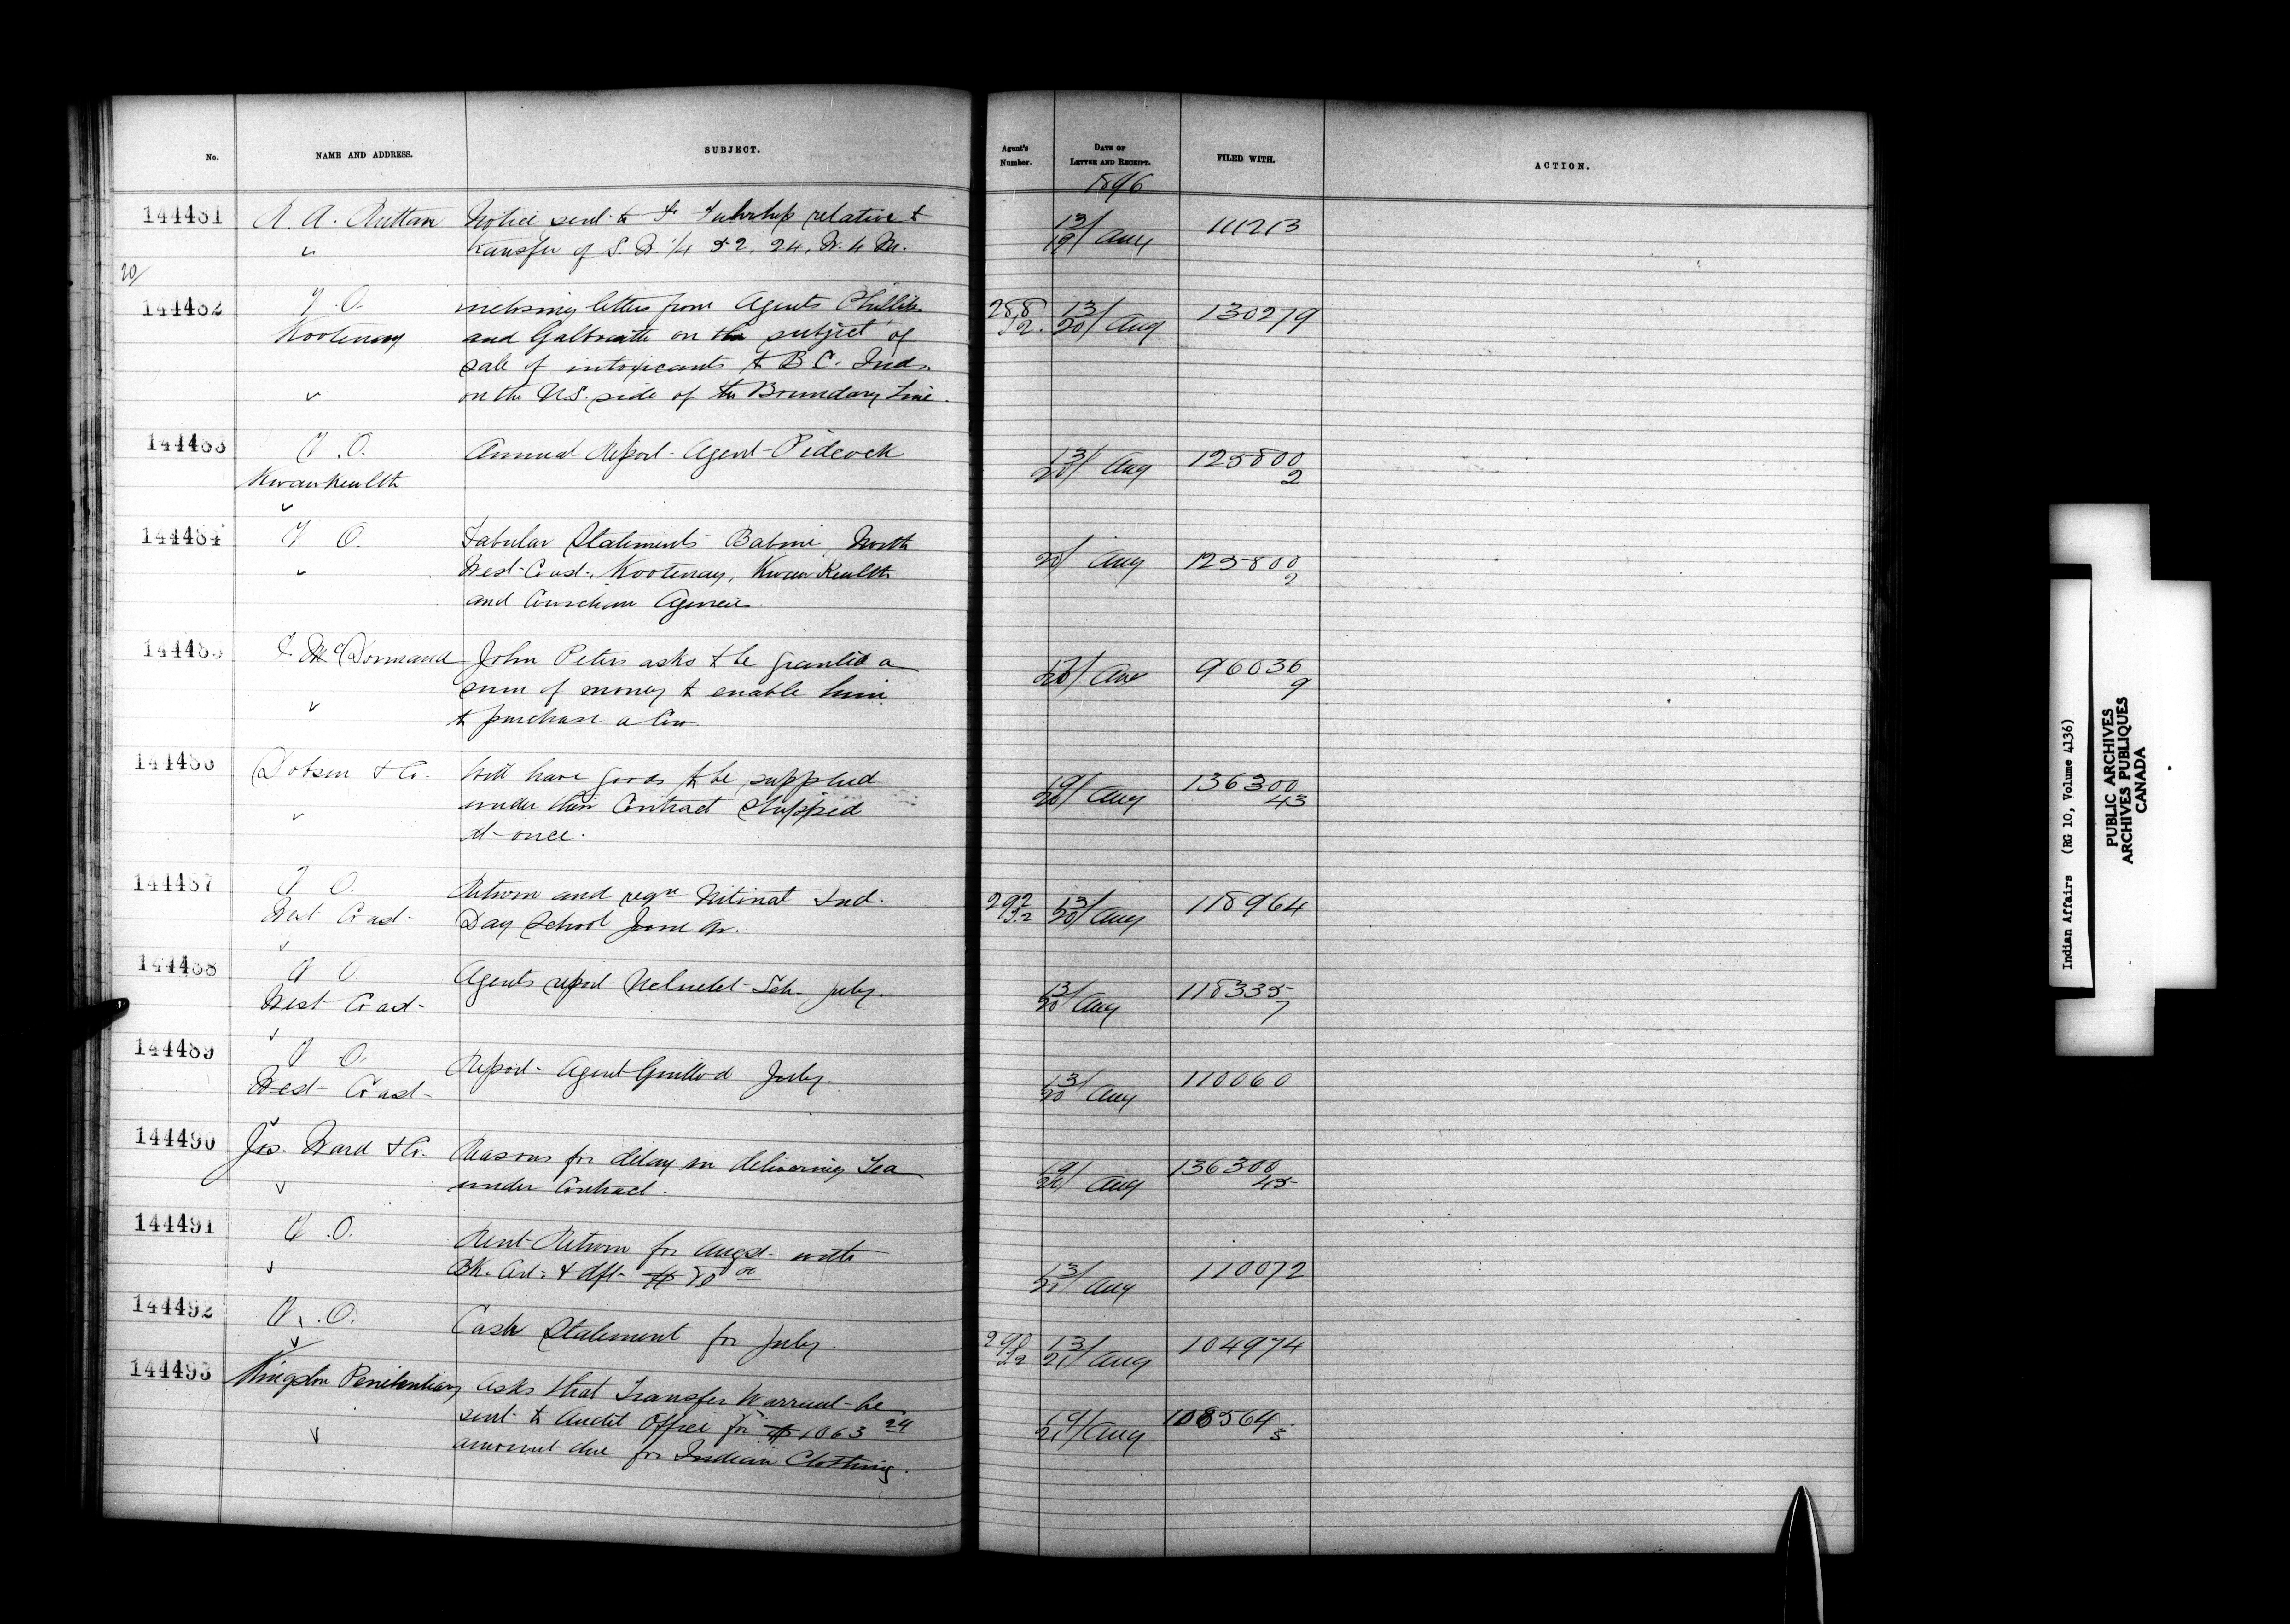 No. NAME AND ADDRESS. SUBJECT. Agent's Number. DATE OF LETTER AND RECEIPT. FILED WITH. ACTION.
1896
144481 R. A. Ruttan Notice sent to relative to 13/19 Aug 111213
transfer of S.W. 1/4 52, 24, W. 4 M.
20/
144482 V. O. inclosing letters from Agents Phillipps 288/S.2. 13/20 Aug 130279
Kootenay and Galbraith on the subject of
sale of intoxicants to B C. Inds.
on the U.S. side of the Boundary Line.
144483 V. O. Annual Report - Agent Pidcock 13/20 Aug 125800/2
Kwawkewlth
144484 V O. Tabular Statements Babine, North 20/ Aug 125800/2
West Coast, Kootenay, Kwawkewlth
and Cowichan Agencies.
144485 McDormand John Peters asks to be granted a 20/ Aug 96036/9
sum of money to enable him
to purchase a Cow.
144486 Dobson & Co. Will have goods to be supplied 19/20 Aug 136300/43
under their Contract shipped
at once.
144487 V O. Return and reqn Nitinat Ind. 292/S.2 13/20 Aug 118964
West Coast Day School June Qr.
144488 V O Agents report Ucluelet Sch. July. 13/20 Aug 118335/7
West Coast
144489 V O. Report - Agent Guillod July. 13/20 Aug 110060
West Coast
144490 Jos. Ward & Co. Reasons for delay in delivering Tea 19/20 Aug 136300/45
under Contract.
144491 V .O. Rent Return for Augst. with 13/21 Aug 110072
Bk. & dft. $ 80 00
144492 V. .O. Cash Statement for July. 298/S.2 13/21 Aug 104974
144493 Kingston Penitentiary Asks that Transfer Warrant be 19/21 Aug 108564/5
sent to Audit Office for $1063 24
amount due for Indian Clothing.
Indian Affairs (RG 10, Volume 4136)
PUBLIC ARCHIVES
ARCHIVES PUBLIQUES
CANADA